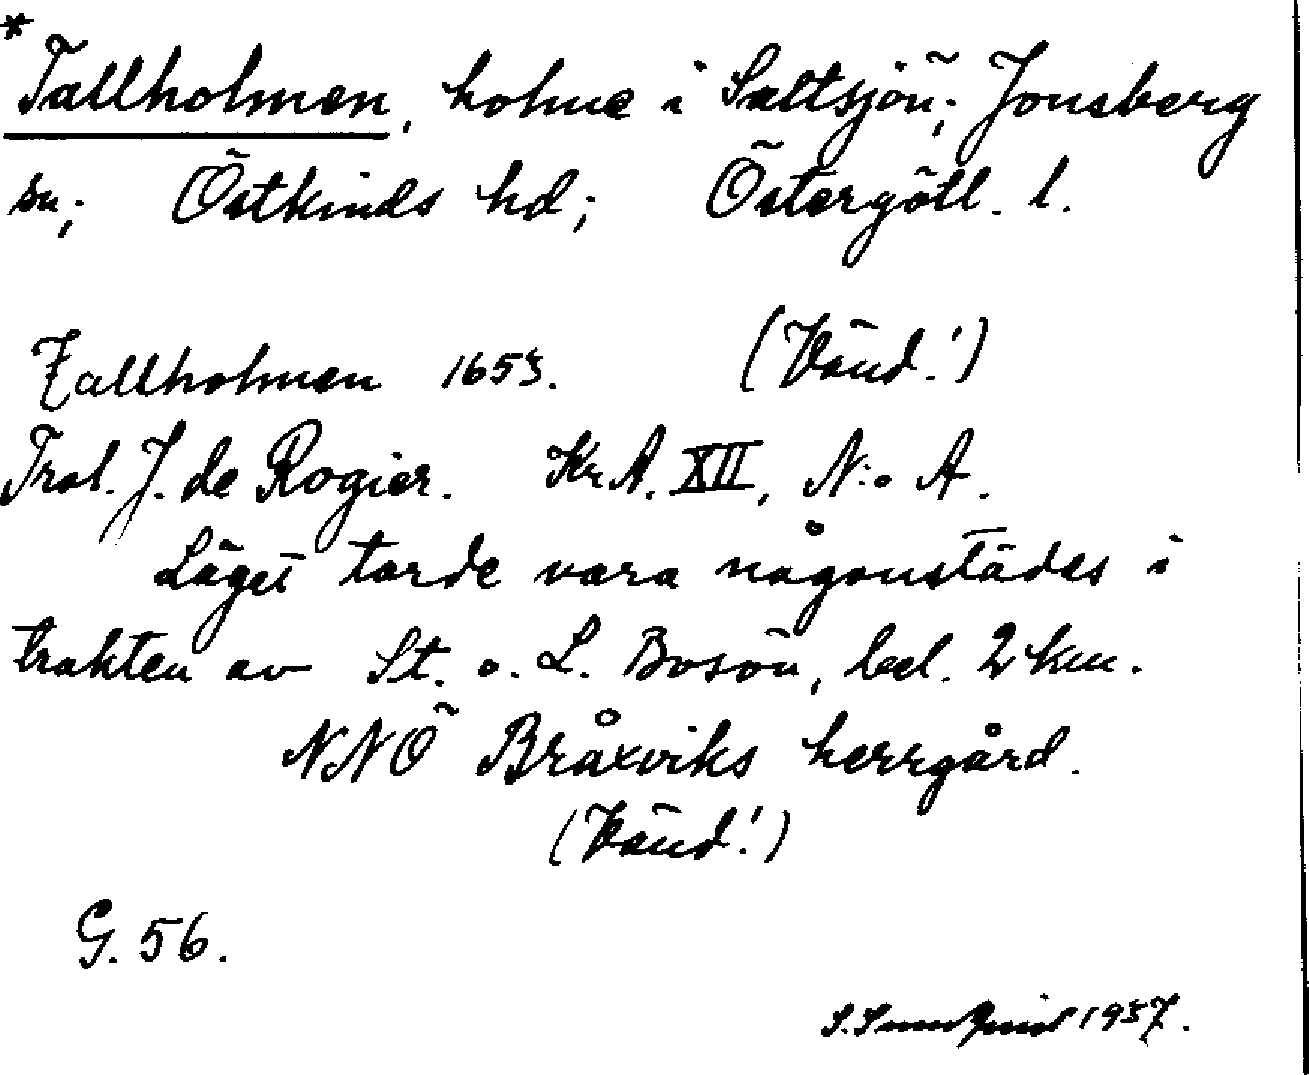 * Tallholmen, holme i Saltsjön; Jonsberg
sn; Östkinds hd; Östergötl. l.
Tallholmen 1653. (Vänd!)
Trol. J. de Rogier. Kr.A. XII, N:o A.
Läget torde vara någonstädes i
trakten av St. o. L. Bosön, bel. 2 km.
NNÖ Bråxviks herrgård.
(Vänd!)
G. 56.
1957.